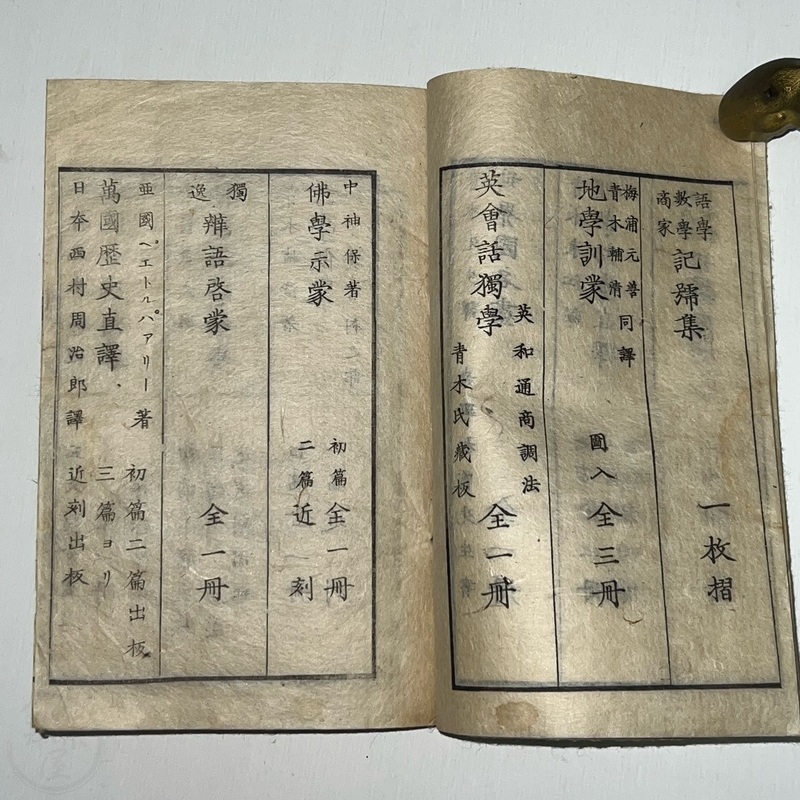 語學
數學
商家
記號集
一枚摺
梅浦元善
青木輔清
同譯
地學訓蒙
圖入
全三冊
英和通商調法
英會話獨學
青木氏藏板
全一冊
中神保著
佛學示蒙
初篇全一冊
二篇近刻
獨逸
辯語啓蒙
全一冊
亜國ペエトルパアリー著
初篇二篇出板
萬國歷史直譯
三篇ヨリ
日本西村周治郎譯
近刻出板